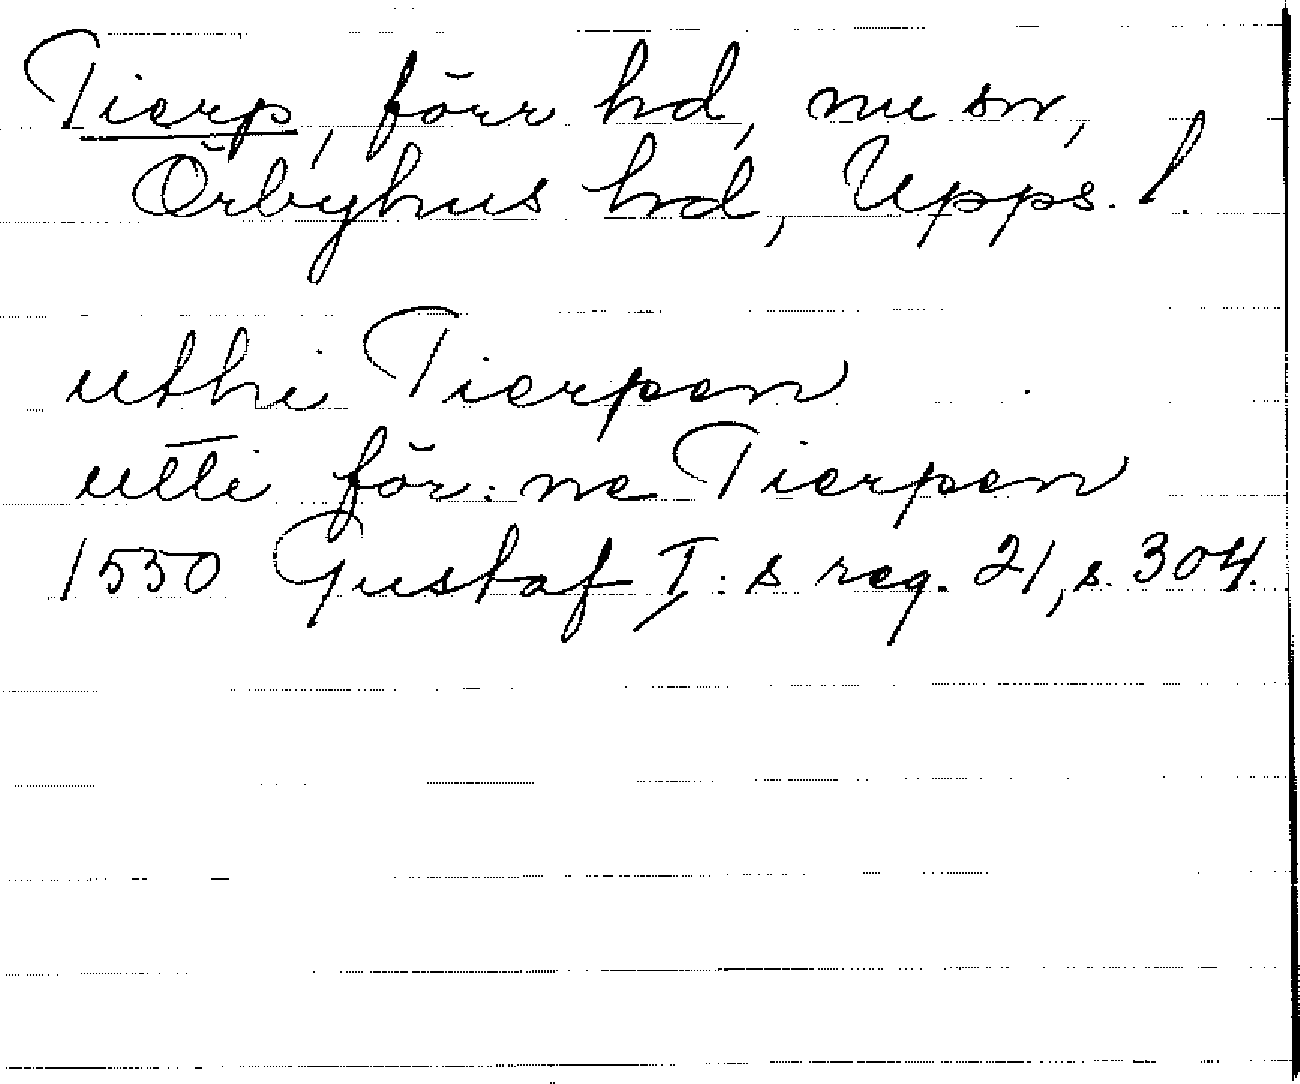 Tierp, förr hd, nu sn,
Örbyhus hd, Upps. l.
uthi Tierpen
utti för:ne Tierpen
1550 Gustaf I:s reg. 21, s. 304.